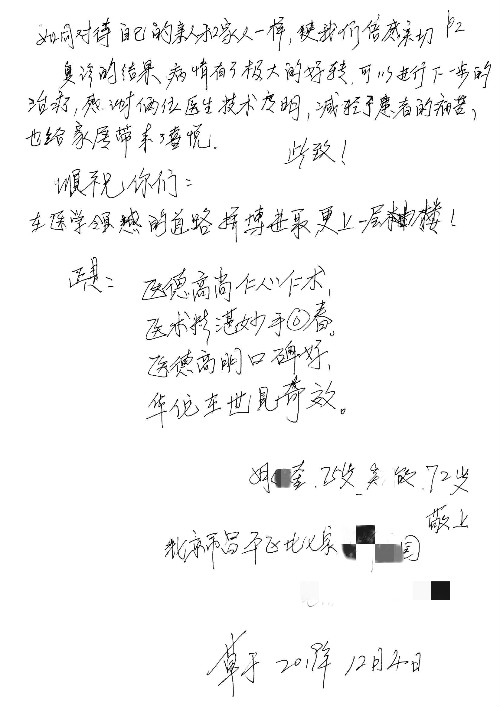 如同对待自己的亲人和家人一样,使我们倍感亲切 P2
复诊的结果,病情有了极大的好转,可以进行下一步的
治疗,感谢俩位医生技术高明,减轻了患者的病苦,
也给家属带来了喜悦.
此致!
顺祝你们:
在医学领域的道路拼博进取更上一层楼!
正是:
医德高尚仁心仁术,
医术精湛妙手回春。
医德高明口碑好,
华佗在世见奇效。
奎.75岁 72岁
敬上
北京市昌平区北七家 园
草于2019年12月20日